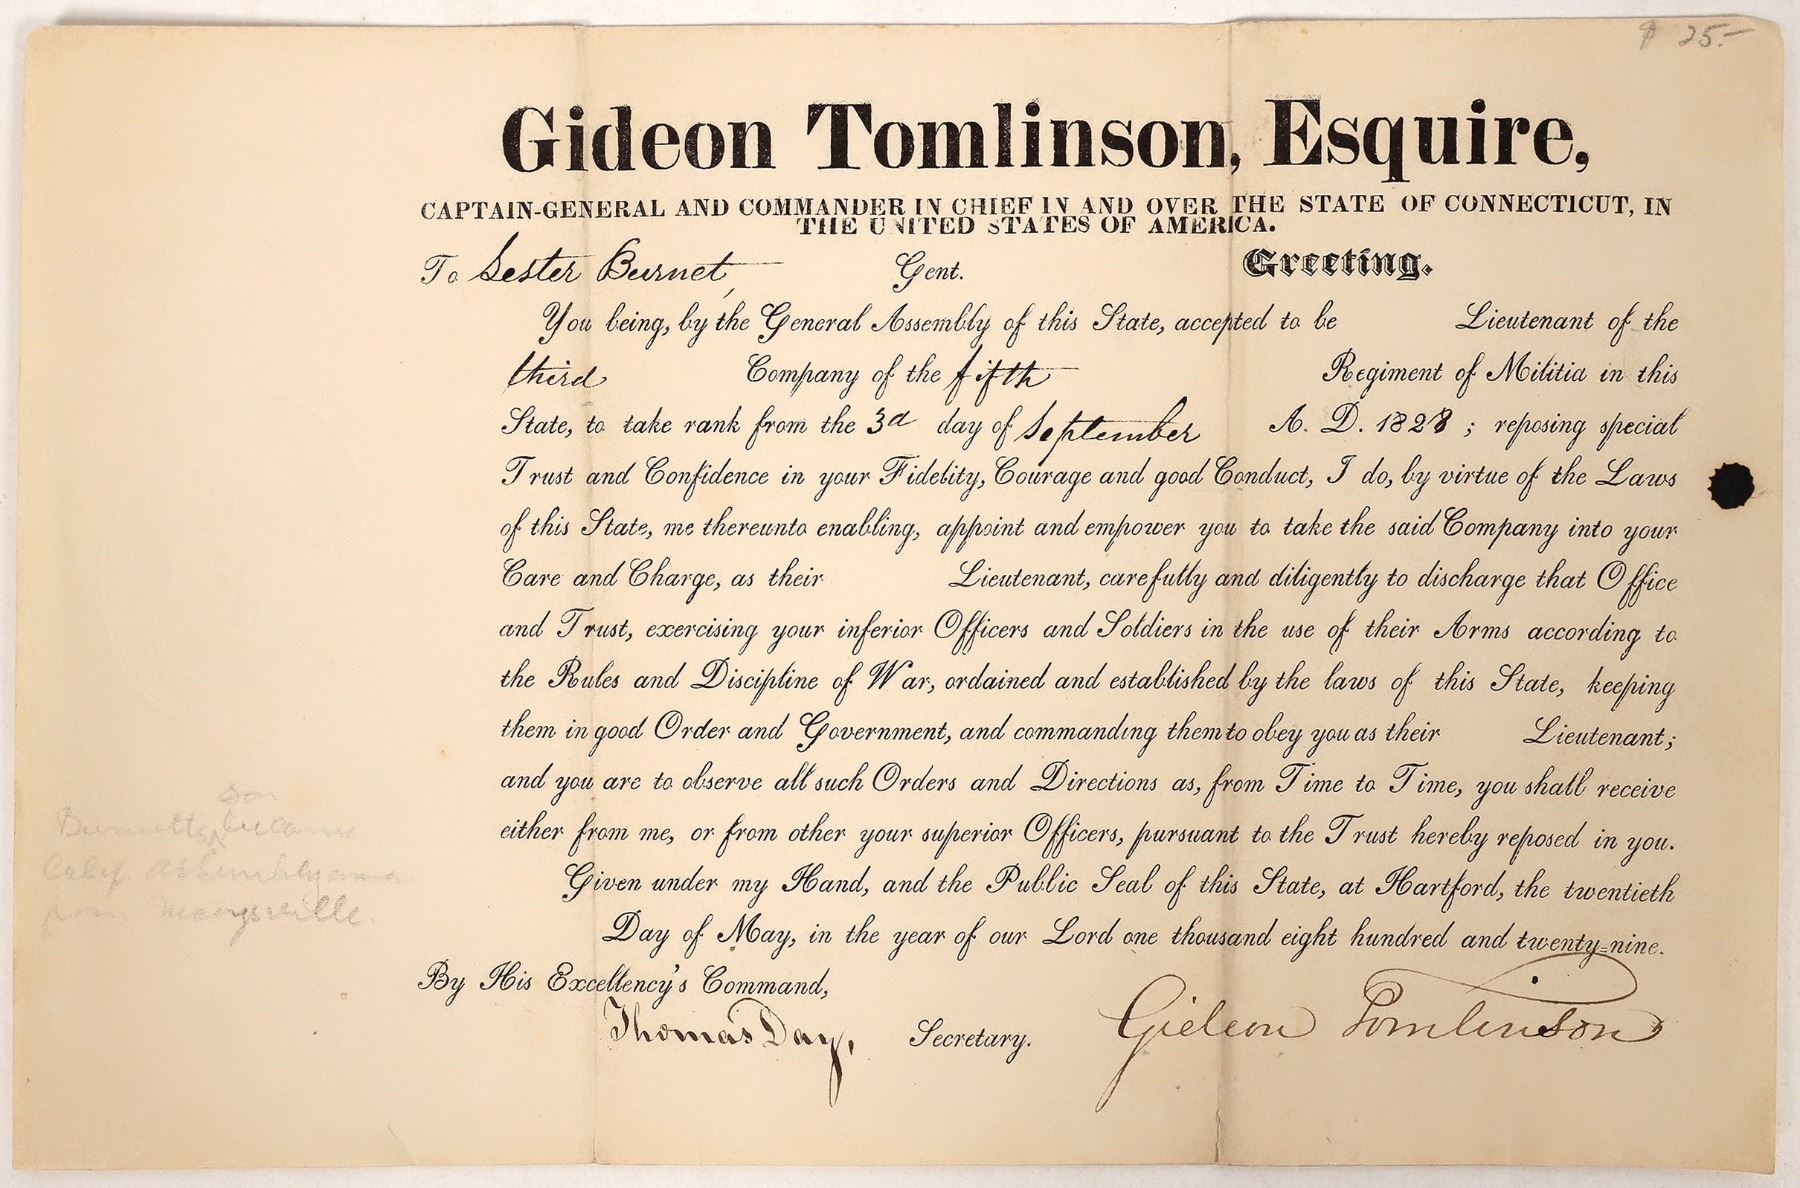 $ 25.-
Gideon Tomlinson, Esquire,
CAPTAIN-GENERAL AND COMMANDER IN CHIEF IN AND OVER THE STATE OF CONNECTICUT, IN
THE UNITED STATES OF AMERICA.
To Lester Burnet, Gent. Greeting.
You being, by the General Assembly of this State, accepted to be Lieutenant of the
third Company of the fifth Regiment of Militia in this
State, to take rank from the 3d day of September A. D. 1828 ; reposing special
Trust and Confidence in your Fidelity, Courage and good Conduct, I do, by virtue of the Laws
of this State, me thereunto enabling, appoint and empower you to take the said Company into your
Care and Charge, as their Lieutenant, carefully and diligently to discharge that Office
and Trust, exercising your inferior Officers and Soldiers in the use of their Arms according to
the Rules and Discipline of War, ordained and established by the laws of this State, keeping
them in good Order and Government, and commanding them to obey you as their Lieutenant;
and you are to observe all such Orders and Directions as, from Time to Time, you shall receive
either from me, or from other your superior Officers, pursuant to the Trust hereby reposed in you.
Given under my Hand, and the Public Seal of this State, at Hartford, the twentieth
Day of May, in the year of our Lord one thousand eight hundred and twenty-nine.
By His Excellency's Command,
Thomas Day, Secretary.
Gideon Tomlinson
son
Burnetts became
Calif. Assemblyman
from Marysville.